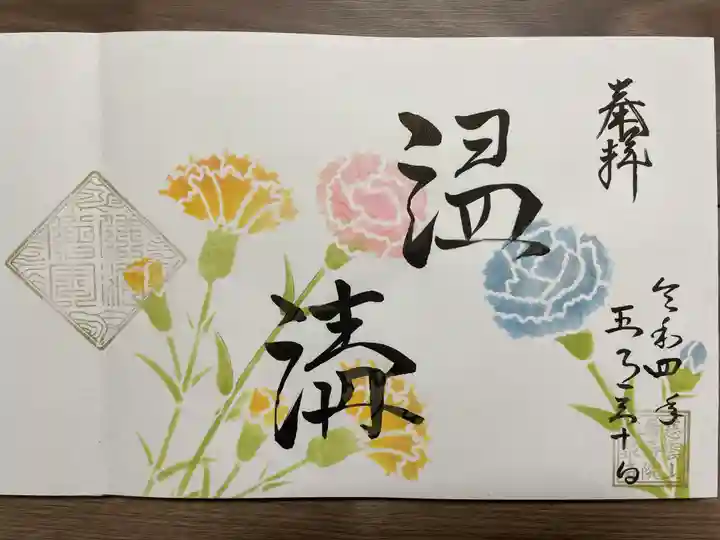 奉拝
温
溝
令和四年
五月三十日